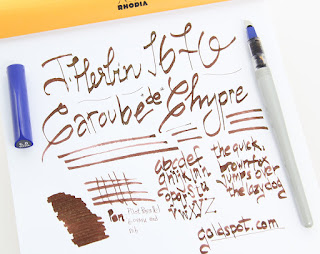 RHODIA
J. Herbin 1670
Caroube "de" Chypre
abcdef
ghijklmn
opqrstu
vwxyz
the quick
brown fox
jumps over
the lazy dog
Pen
Pilot Parallel
nib
goldspot.com